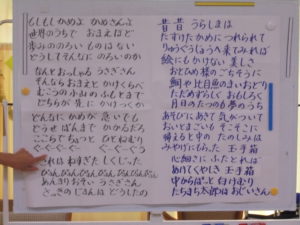 もしもしかめよ かめさんよ
世界のうちで おまえほど
歩みののろい ものはない
どうしてそんなに のろいのか
なんとおっしゃる うさぎさん
そんなら おまえと かけくらべ
むこうの 小山の ふもとまで
どちらが 先に かけつくか
どんなに かめが 急いでも
どうせ ばんまで かかるだろ
ここらで ちょっと ひとねむり
ぐーぐーぐーぐー ぐーぐーぐう
これは ねすぎた しくじった
ぴょんぴょんぴょんぴょんぴょんぴょん
あんまりおそい うさぎさん
さっきの じまんは どうしたの
昔昔 うらしまは
たすけたかめに つれられて
りゅうぐうじょうへ 来てみれば
絵にもかけない 美しさ
おとひめ様の ごちそうに
鯛や比目魚の まいおどり
ただめずらしく おもしろく
月日のたつのも 夢のうち
あそびにあきて 気がついて
おいとまごいも そこそこに
帰ると中の たのしみは
みやげにもらった 玉手箱
心細さに ふたとれば
あけてくやしき 玉手箱
中からぱっと 白けむり
たちまち太郎は おじいさん